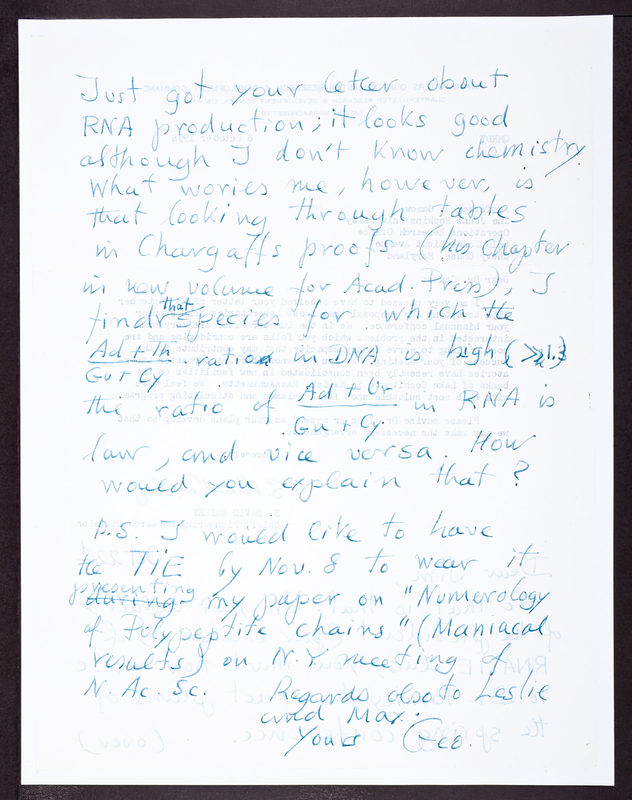 Just got your letter about
RNA production; it looks good
although I don't know chemistry.
What wories me, however, is
that looking through tables
in Chargaffs proofs (his chapter
in new volume for Acad. Press), I
find that species for which the
Ad + Th / Gu + Cy ratio in DNA is high
the ratio of Ad + Ur / Gu + Cy in RNA is
law, and vice versa. How
would you explain that?
P.S. I would like to have
the TIE by Nov. 8 to wear it
during presenting my paper on "Numerology
of Polypeptite chains" (Maniacal
results) on N.Y. meeting of
N. Ac. Sc. Regards also to Leslie
and Max.
Yours Geo.
(over)